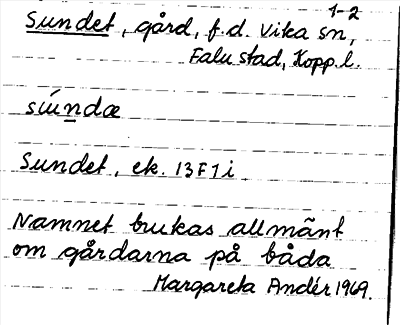 1-2
Sundet, gård, f.d. Vika sn,
Falu stad, Kopp.l.
súndæ
Sundet, ek. 13F1i
Namnet brukas allmänt
om gårdarna på båda
Margareta Andér 1969.